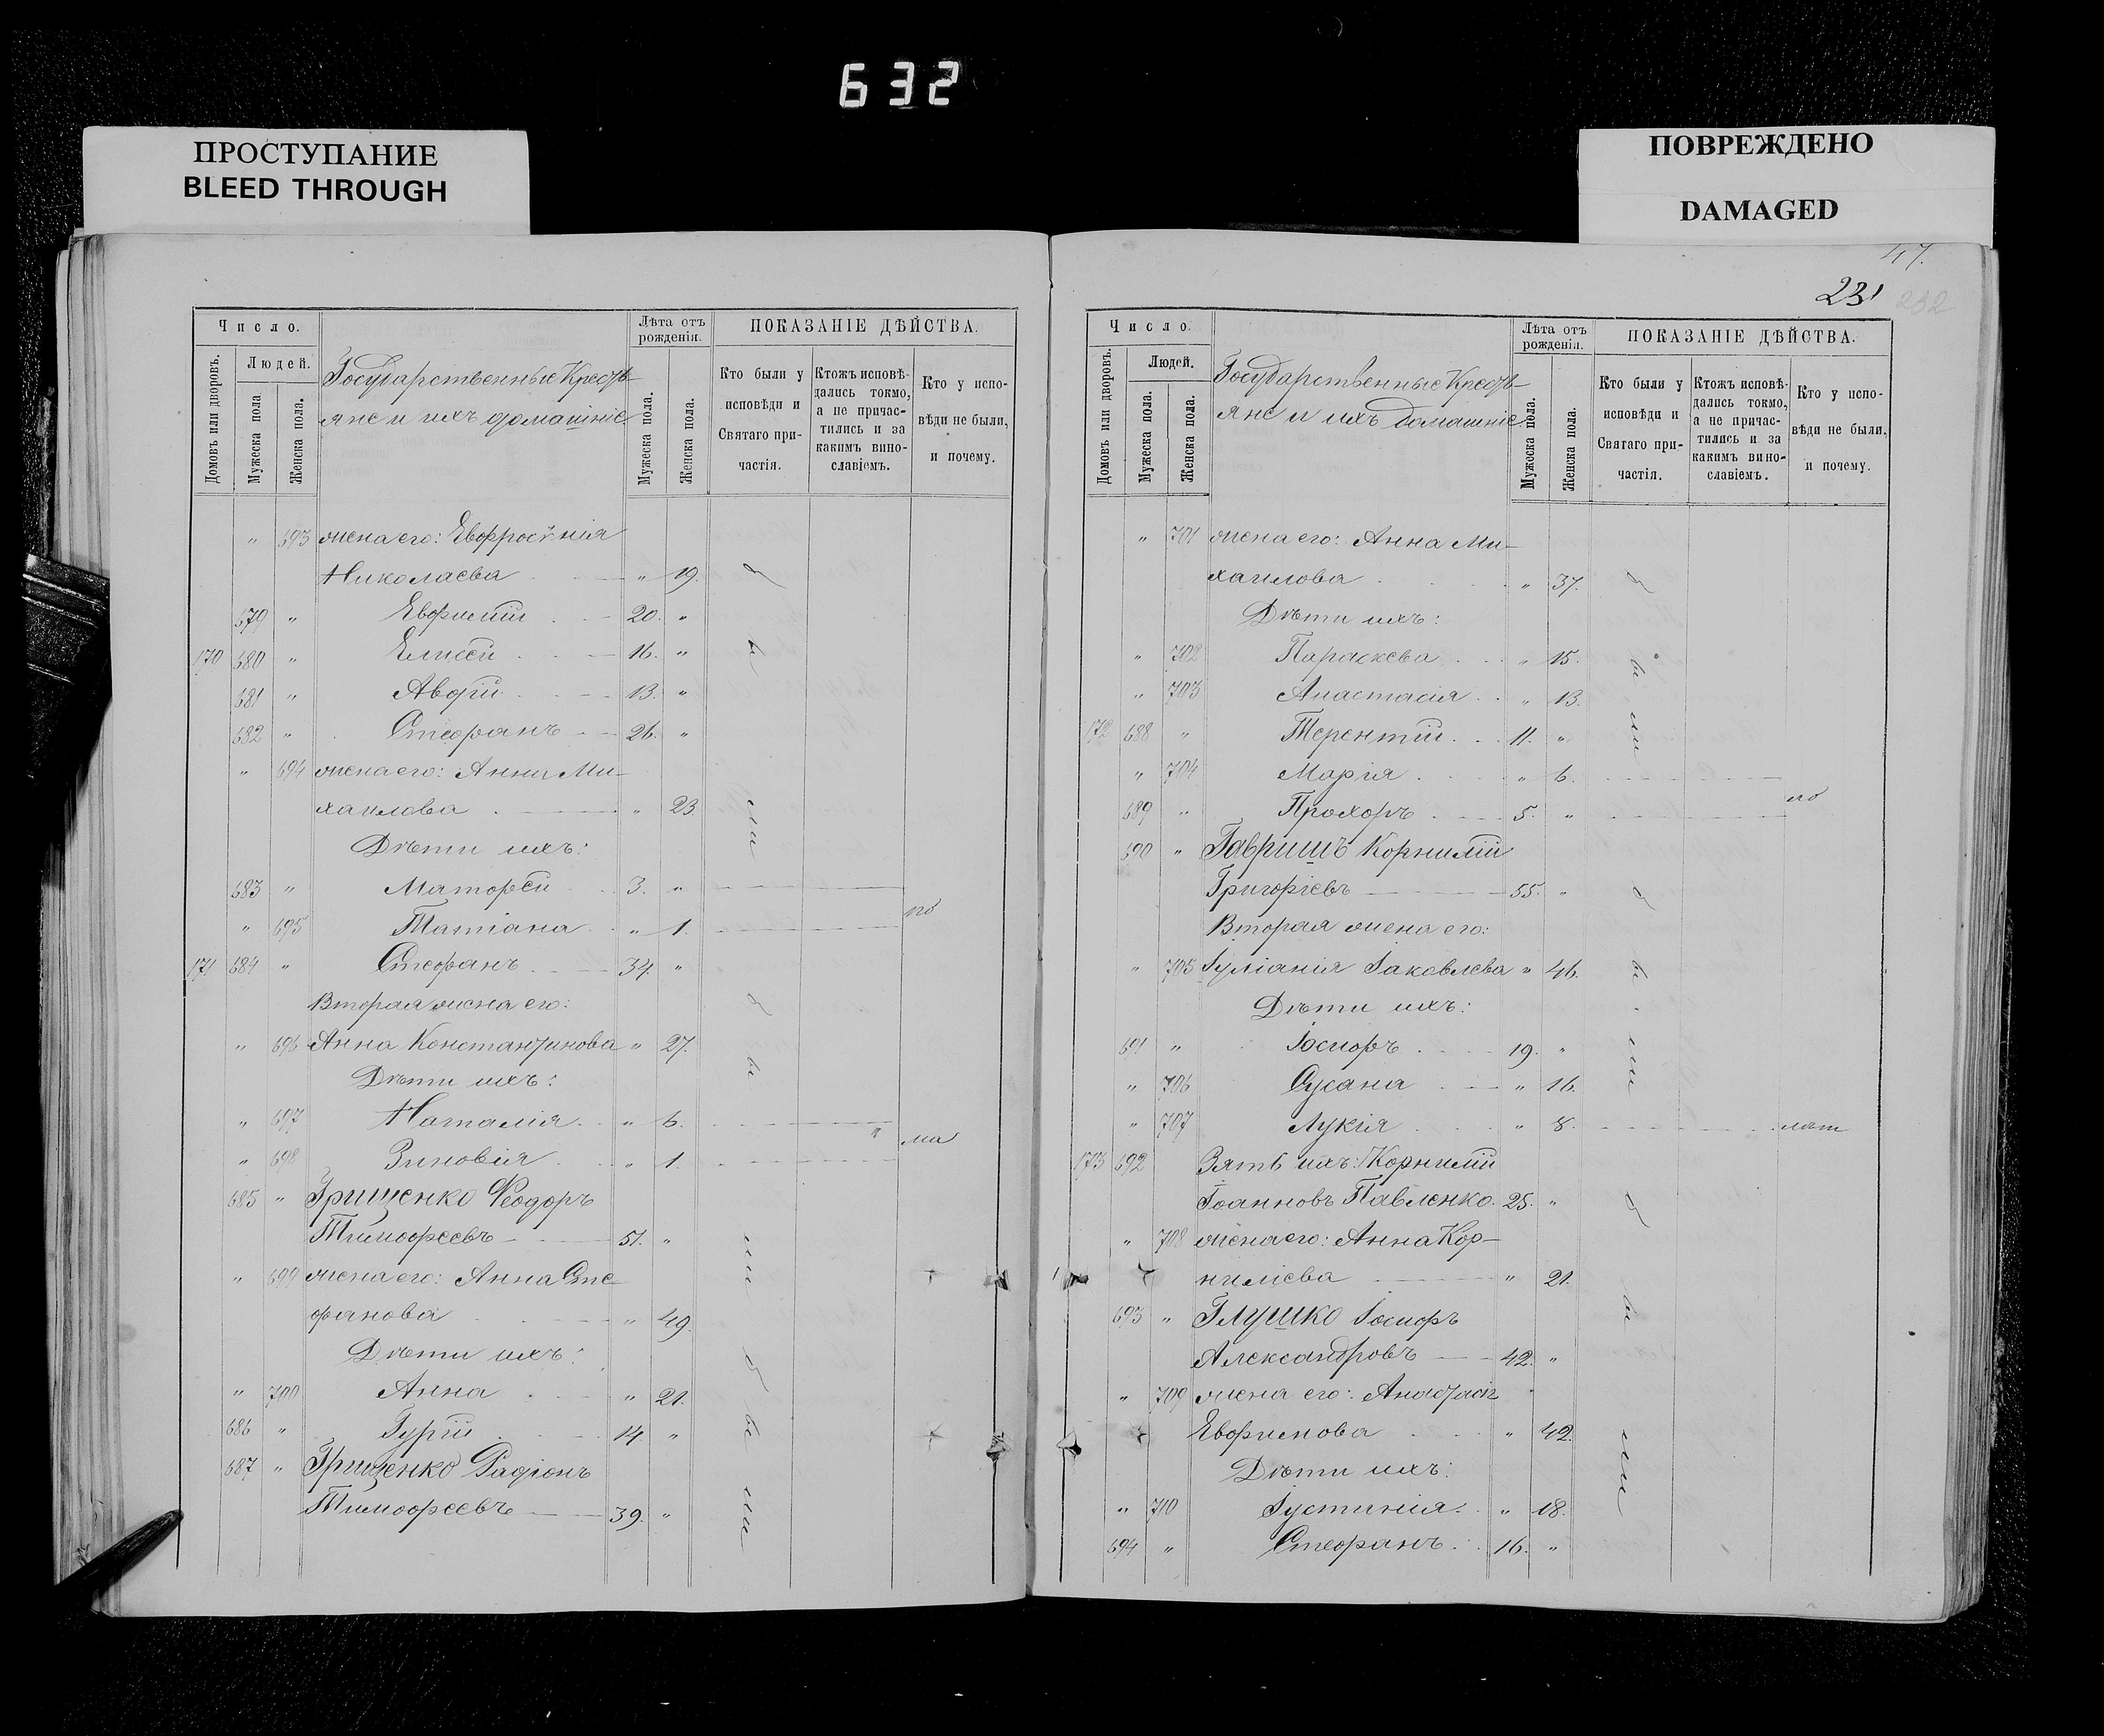 632
ПРОСТУПАНИЕ
BLEED THROUGH
ПОВРЕЖДЕНО
DAMAGED
Число.
Домовъ или дворовъ.
Людей.
Мужеска пола
Женска пола.
Государственные Крестъ-
яне и ихъ домашніе.
Лѣта отъ рожденія.
Мужеска пола.
Женска пола.
ПОКАЗАНІЕ ДѢЙСТВА.
Кто были у исповѣди и Святаго при-частія.
Ктожъ исповѣ-дались токмо, а не причас-тились и за какимъ вино-славіемъ.
Кто у испо-вѣди не были, и почему.
" 693 жена его: Евфросѵнія
Николаева " 19.
679 " Евфимій 20. "
170 680 " Елисей 16. "
681 " Авдій 13. "
682 " Стефанъ 26. "
" 694 жена его: Анна Ми-
хаилова " 23
Дѣти ихъ:
683 " Матфей 3. "
" 695 Татіана " 1. по
171 684 " Стефанъ 34. "
Вторая жена его:
" 696 Анна Константинова " 27.
Дѣти ихъ:
" 697 Наталія " 6.
" 698 Зиновія " 1. ма
685 " Грищенко Ѳеодоръ
Тимофеевъ 51. "
" 699 жена его: Анна Сте-
фанова " 49.
Дѣти ихъ:
" 700 Анна " 21.
686 " Гурій 14. "
687 " Грищенко Радіонъ
Тимофеевъ 39. "
бы ли бы ли бы ли
47.
231
232
Число.
Домовъ или дворовъ.
Людей.
Мужеска пола.
Женска пола.
Государственные Крестъ-
яне и ихъ домашніе.
Лѣта отъ рожденія.
Мужеска пола.
Женска пола.
ПОКАЗАНІЕ ДѢЙСТВА.
Кто были у исповѣди и Святаго при-частія.
Ктожъ исповѣ-дались токмо, а не причас-тились и за какимъ вино-славіемъ.
Кто у испо-вѣди не были, и почему.
" 701 жена его: Анна Ми-
хаилова " 37.
Дѣти ихъ:
" 702 Параскева " 15.
" 703 Анастасія " 13.
172 688 " Терентій 11. "
" 704 Марія " 6.
689 " Прохоръ 5. " ло
690 " Гавришъ Корнилій
Григоріевъ 55. "
Вторая жена его:
" 705 Іуліанія Іаковлева " 46.
Дѣти ихъ:
691 " Іосифъ 19. "
" 706 Сусана " 16.
" 707 Лукія " 8. лѣт
173 692 Зять ихъ: Корнилій
Іоанновъ Павленко. 25. "
" 708 жена его: Анна Кор-
ниліева " 21.
693 " Глушко Іосифъ
Александровъ 42. "
" 709 жена его: Анастасія
Евфимова " 42.
Дѣти ихъ:
" 710 Іустинія " 18.
694 " Стефанъ 16. "
бы ли бы ли бы ли